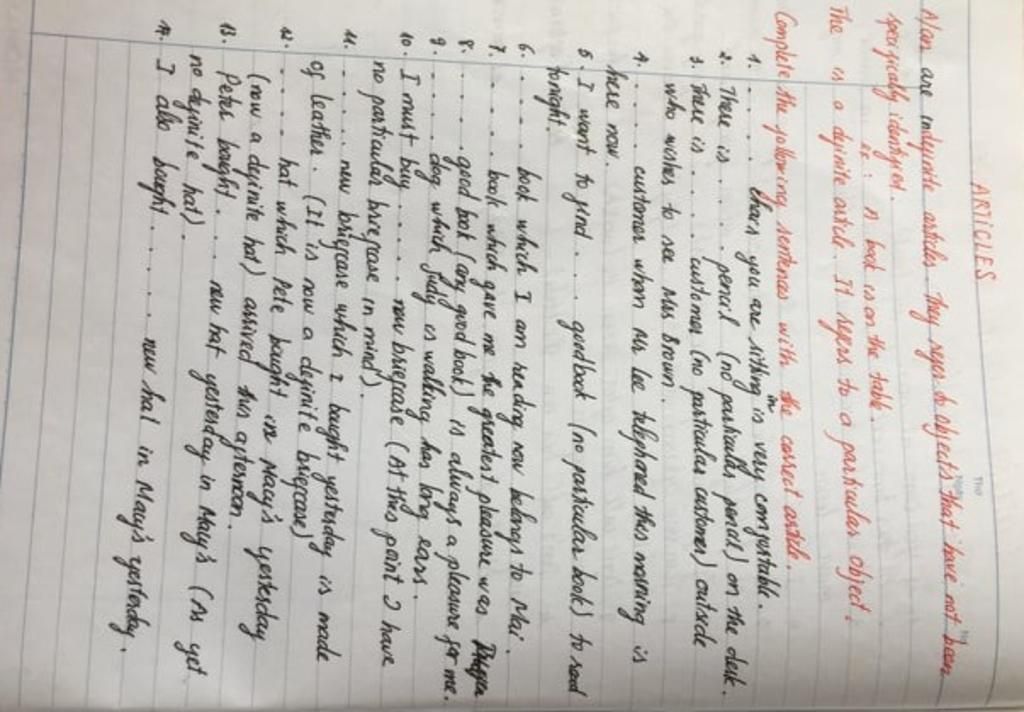 ARTICLES
A/an are indefinite articles. They refer to objects that have not been
specifically identified.
ex: A book is on the table.
The is a definite article. It refers to a particular object.
Complete the following sentences with the correct article.
1. ..... chair you are sitting in is very comfortable.
2. There is ..... pencil (no particular pencil) on the desk.
3. There is ..... customer (no particular customer) outside
who wishes to see Mrs Brown.
4. ..... customer whom Mr Lee telephoned this morning is
here now.
5 I want to find .... good book (no particular book) to read
tonight.
6. ..... book which I am reading now belongs to Mai.
7. ..... book which gave me the greatest pleasure was
8. ..... good book (any good book) is always a pleasure for me.
9. ..... dog which Judy is walking has long ears.
10. I must buy ..... new briefcase (At this point I have
no particular briefcase in mind).
11. ..... new briefcase which I bought yesterday is made
of leather. (It is now a definite briefcase)
12. ..... hat which Pete bought in May's yesterday
(now a definite hat) arrived this afternoon.
13. Peter bought ..... new hat yesterday in May's (As yet
no definite hat).
14. I also bought ..... new hat in May's yesterday.